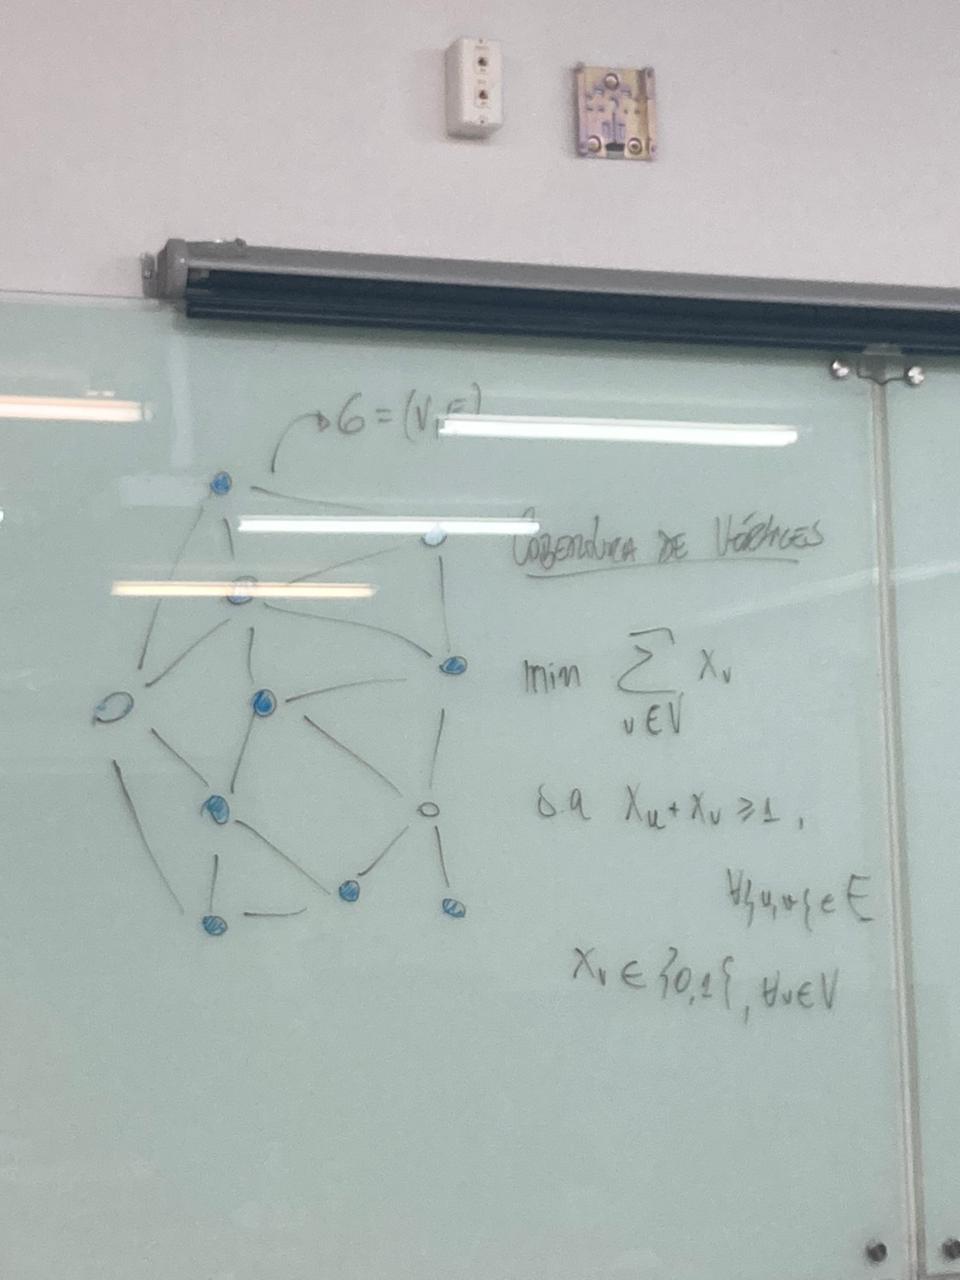 G = (V, E)
COBERTURA DE VÉRTICES
min ∑ xᵥ
v ∈ V
s.a xᵤ + xᵥ ≥ 1,
∀{u,v} ∈ E
xᵥ ∈ {0,1}, ∀v ∈ V